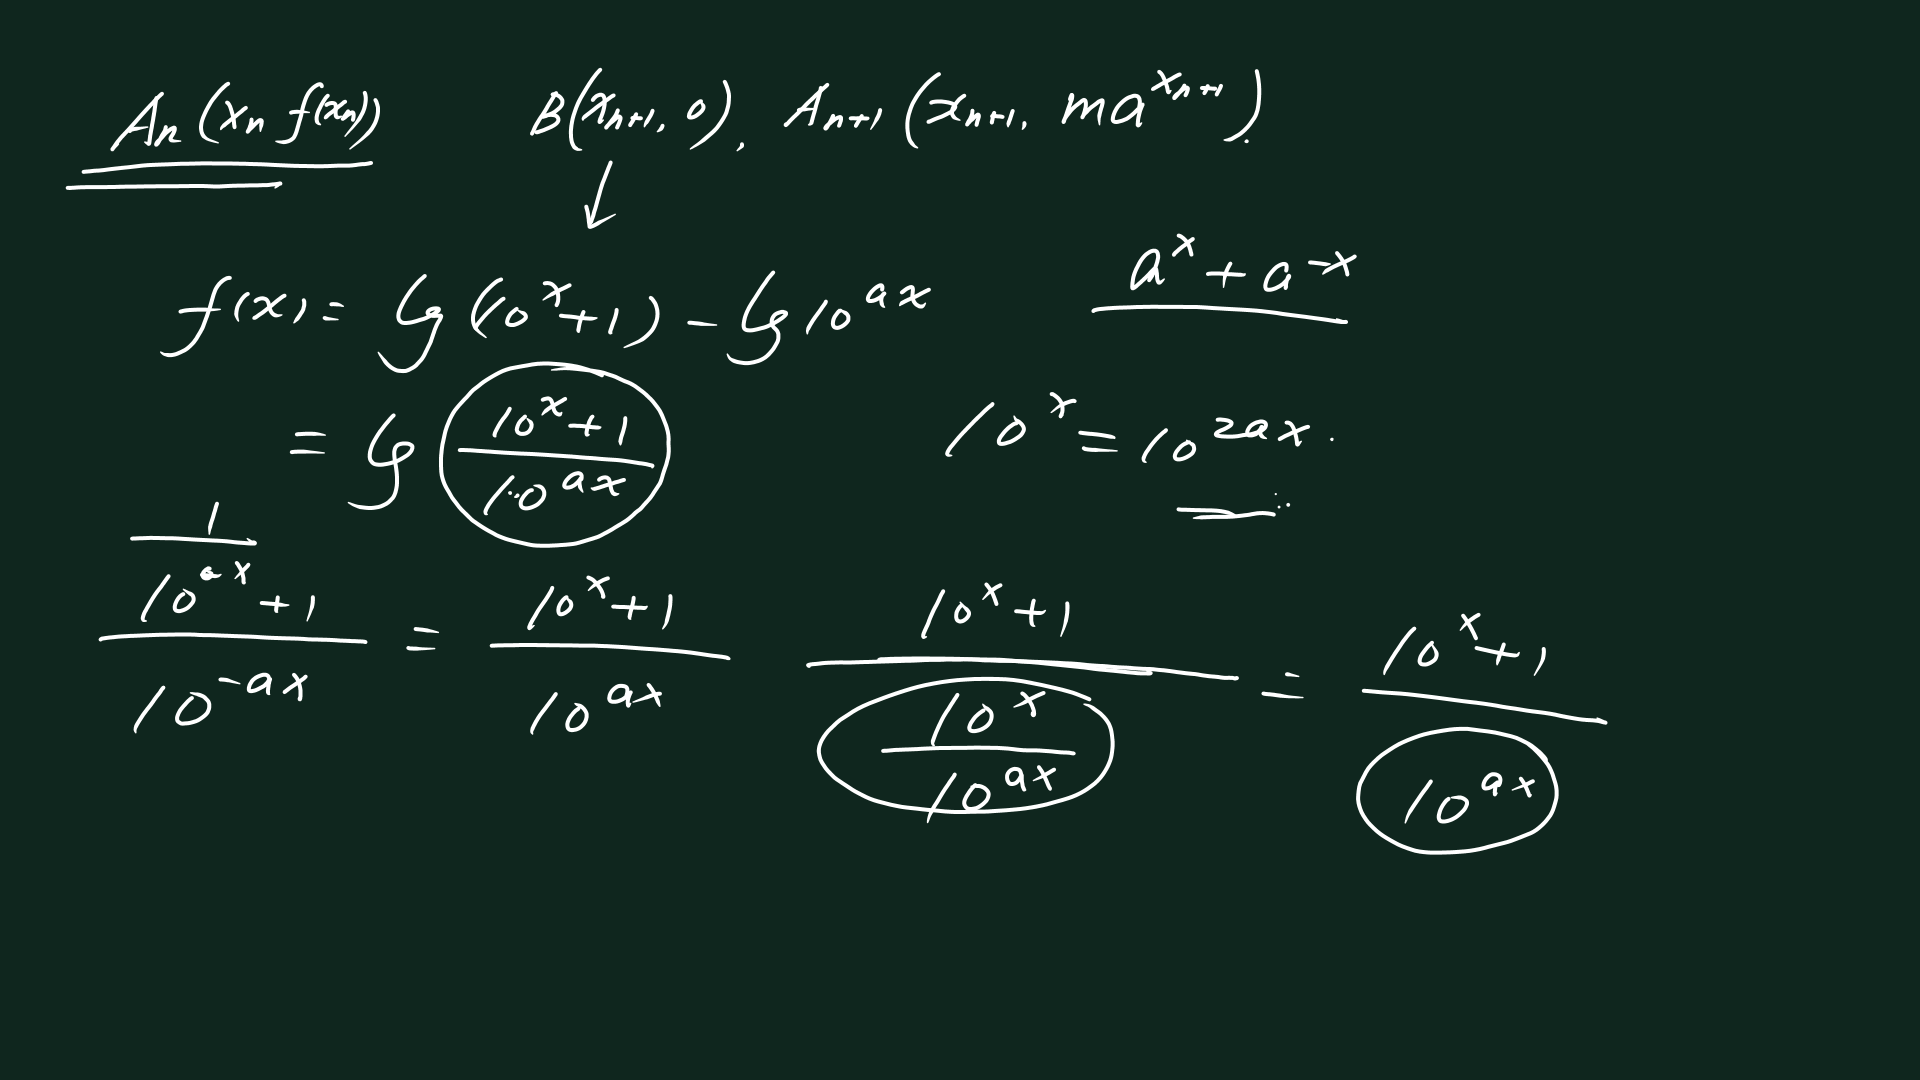 Aₙ(xₙ f(xₙ)) B(xₙ₊₁, 0), Aₙ₊₁(xₙ₊₁, ma^(xₙ₊₁)).
f(x) = lg(10^x+1) - lg10^(ax) a^x + a^(-x)
= lg (10^x+1)/(10^(ax)) 10^x = 10^(2ax).
(1/(10^(ax)) + 1)/(10^(-ax)) = (10^x+1)/(10^(ax)) (10^x+1)/(10^x/10^(ax)) = (10^x+1)/(10^(ax))